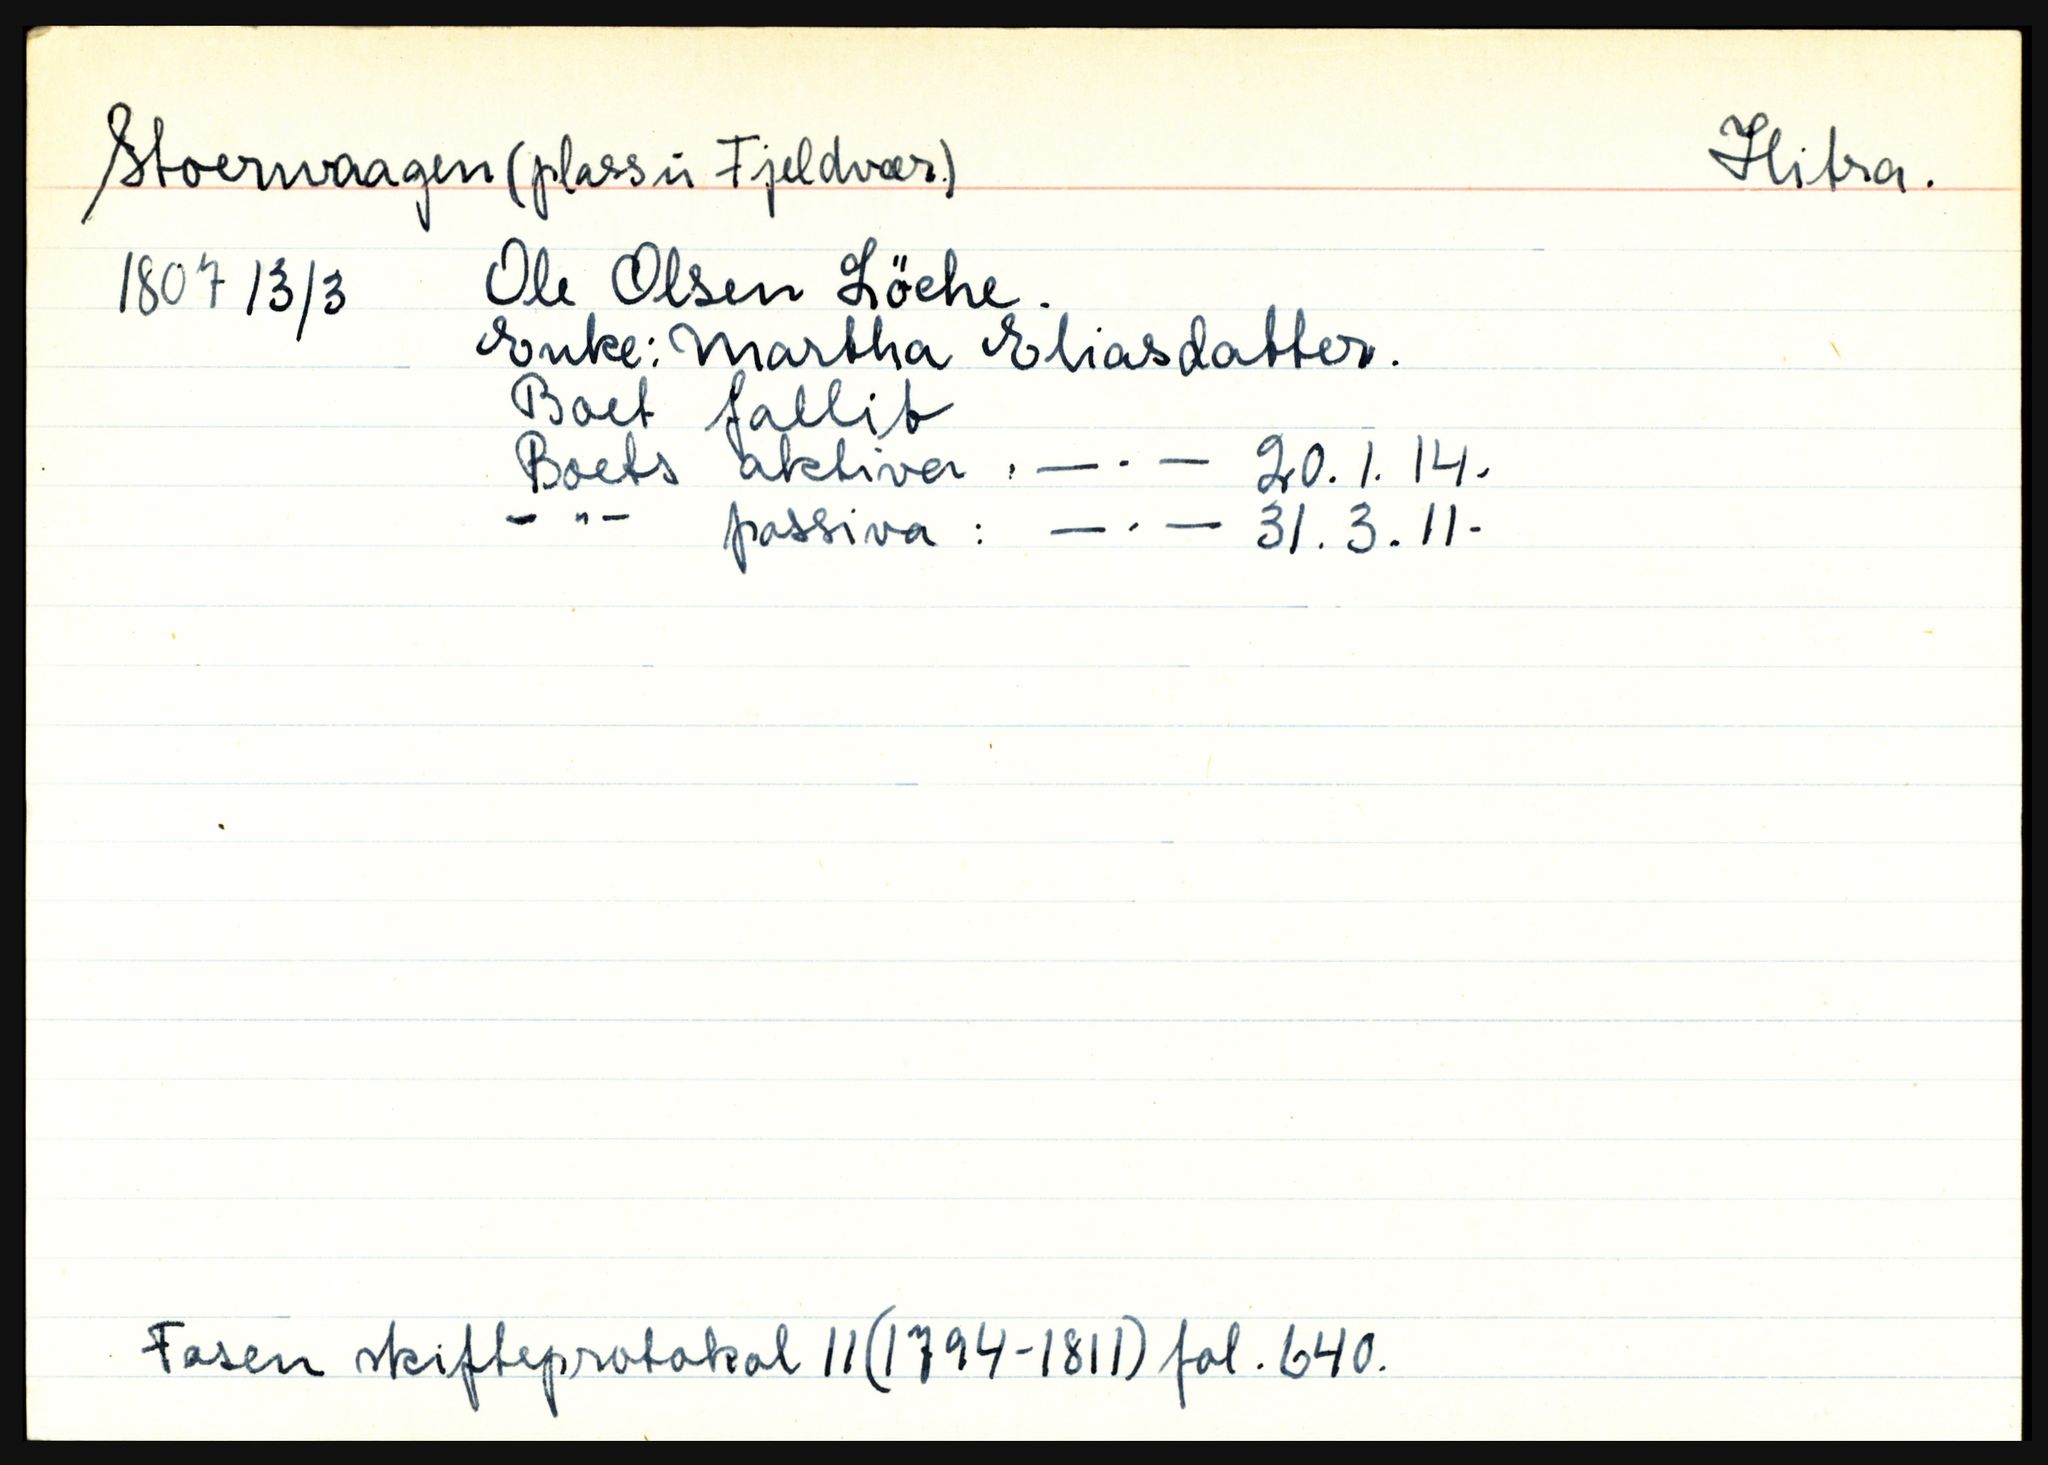 Stoerwaagen (plass u Fjeldvær.) Hitra.
1807 13/3 Ole Olsen Löche.
Enke: Martha Eliasdatter.
Boet fallit
Boets aktiva : — · — 20. 1. 14.
- " - passiva : — · — 31. 3. 11-
Fosen skifteprotokol 11 (1794-1811) fol. 640.